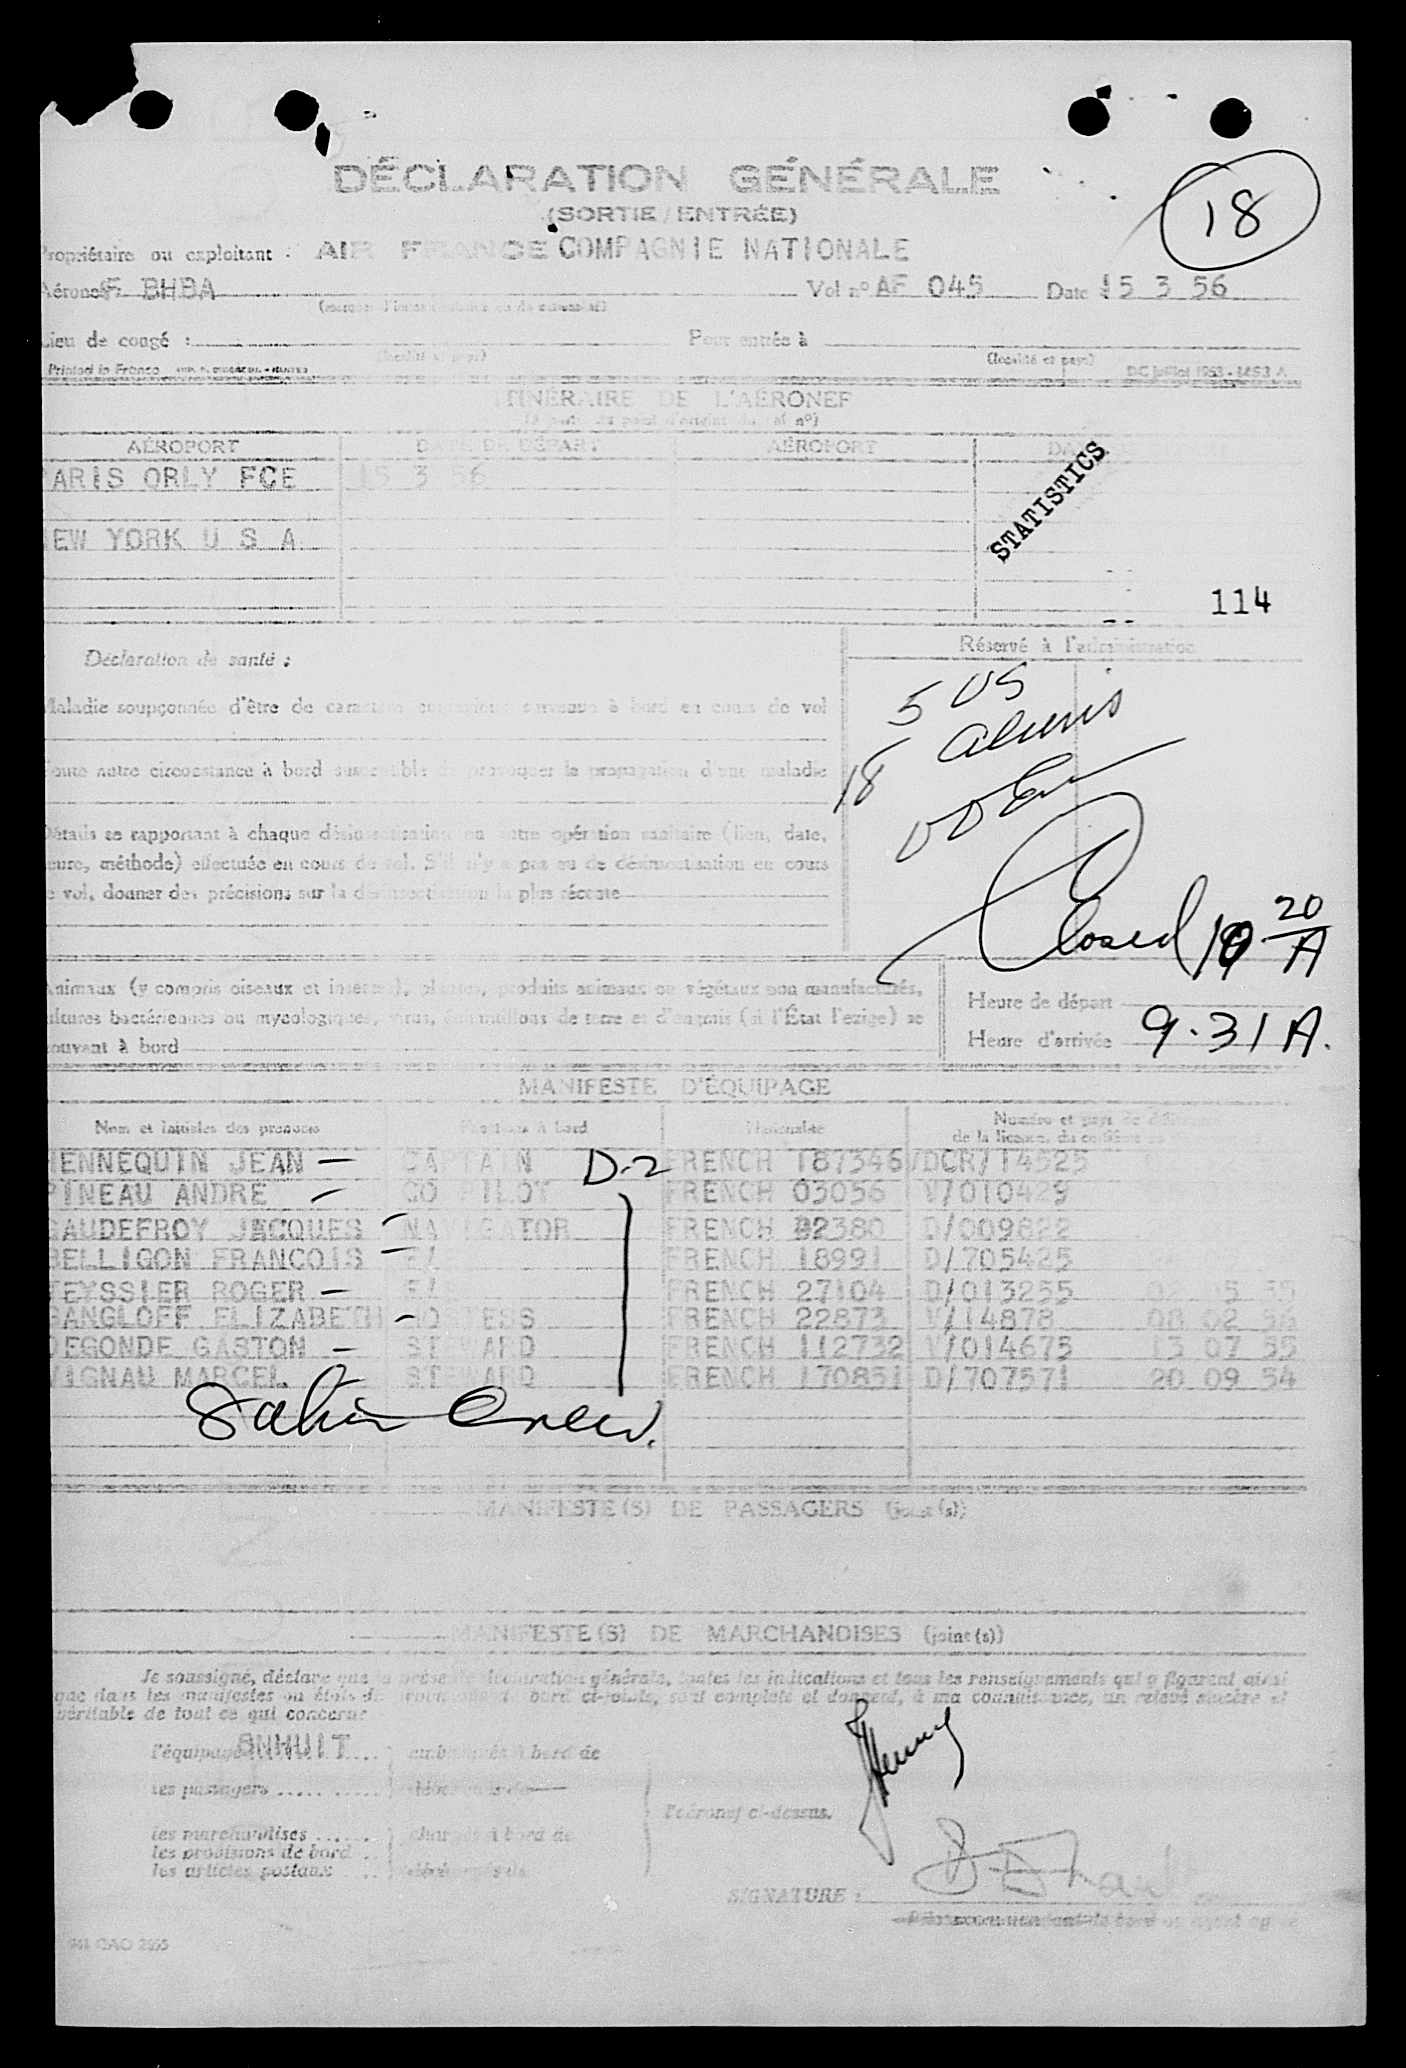 DÉCLARATION GÉNÉRALE
(SORTIE/ENTRÉE)
18
Propriétaire ou exploitant : AIR FRANCE COMPAGNIE NATIONALE
Aéronef F BHBA Vol nº AF 045 Date 15 3 56
Lieu de congé : Pour entrée à
(localité et pays) (localité et pays)
Printed in France
ITINÉRAIRE DE L'AÉRONEF
AÉROPORT DATE DE DÉPART AÉROPORT
PARIS ORLY FCE 15 3 56
STATISTICS
NEW YORK U S A
114
Réservé à l'administration
Déclaration de santé :
5 US
Maladie soupçonnée d'être de caractère contagieux survenue à bord en cours de vol
18 aliens
Toute autre circonstance à bord susceptible de provoquer la propagation d'une maladie
Détails se rapportant à chaque désinsectisation ou autre opération sanitaire (lieu, date,
heure, méthode) effectuée en cours de vol. S'il n'y a pas eu de désinsectisation en cours
de vol, donner des précisions sur la désinsectisation la plus récente
Closed 10 20 A
Animaux (y compris oiseaux et insectes), plantes, produits animaux ou végétaux non manufacturés,
cultures bactériennes ou mycologiques, virus, échantillons de terre et d'engrais (si l'État l'exige) se
trouvant à bord
Heure de départ
Heure d'arrivée 9.31 A.
MANIFESTE D'ÉQUIPAGE
Nom et initiales des prénoms Fonctions à bord Nationalité Numéro et pays de
de la licence, du certificat
HENNEQUIN JEAN — CAPTAIN D-2 FRENCH 187346 /DCR/114525
PINEAU ANDRE — CO PILOT FRENCH 03056 V/010429
GAUDEFROY JACQUES — NAVIGATOR FRENCH 82380 D/009822
BELLIGON FRANCOIS — FRENCH 18991 D/705425
TEYSSIER ROGER — FRENCH 27104 D/013255 02 05 55
GANGLOFF ELIZABETH — HOSTESS FRENCH 22873 V/14878 08 02 56
DEGONDE GASTON — STEWARD FRENCH 112732 V/014675 13 07 55
VIGNAU MARCEL STEWARD FRENCH 170851 D/707571 20 09 54
Entire Crew.
MANIFESTE(S) DE PASSAGERS (joint(s))
MANIFESTE(S) DE MARCHANDISES (joint(s))
Je soussigné, déclare que la présente déclaration générale, toutes les indications et tous les renseignements qui y figurent ainsi
que dans les manifestes ou états de provisions de bord ci-joints, sont complets et donnent, à ma connaissance, un relevé sincère et
véritable de tout ce qui concerne
l'équipage embarqués à bord de
les passagers débarqués de
l'aéronef ci-dessus.
les marchandises chargés à bord de
les provisions de bord
les articles postaux
SIGNATURE :